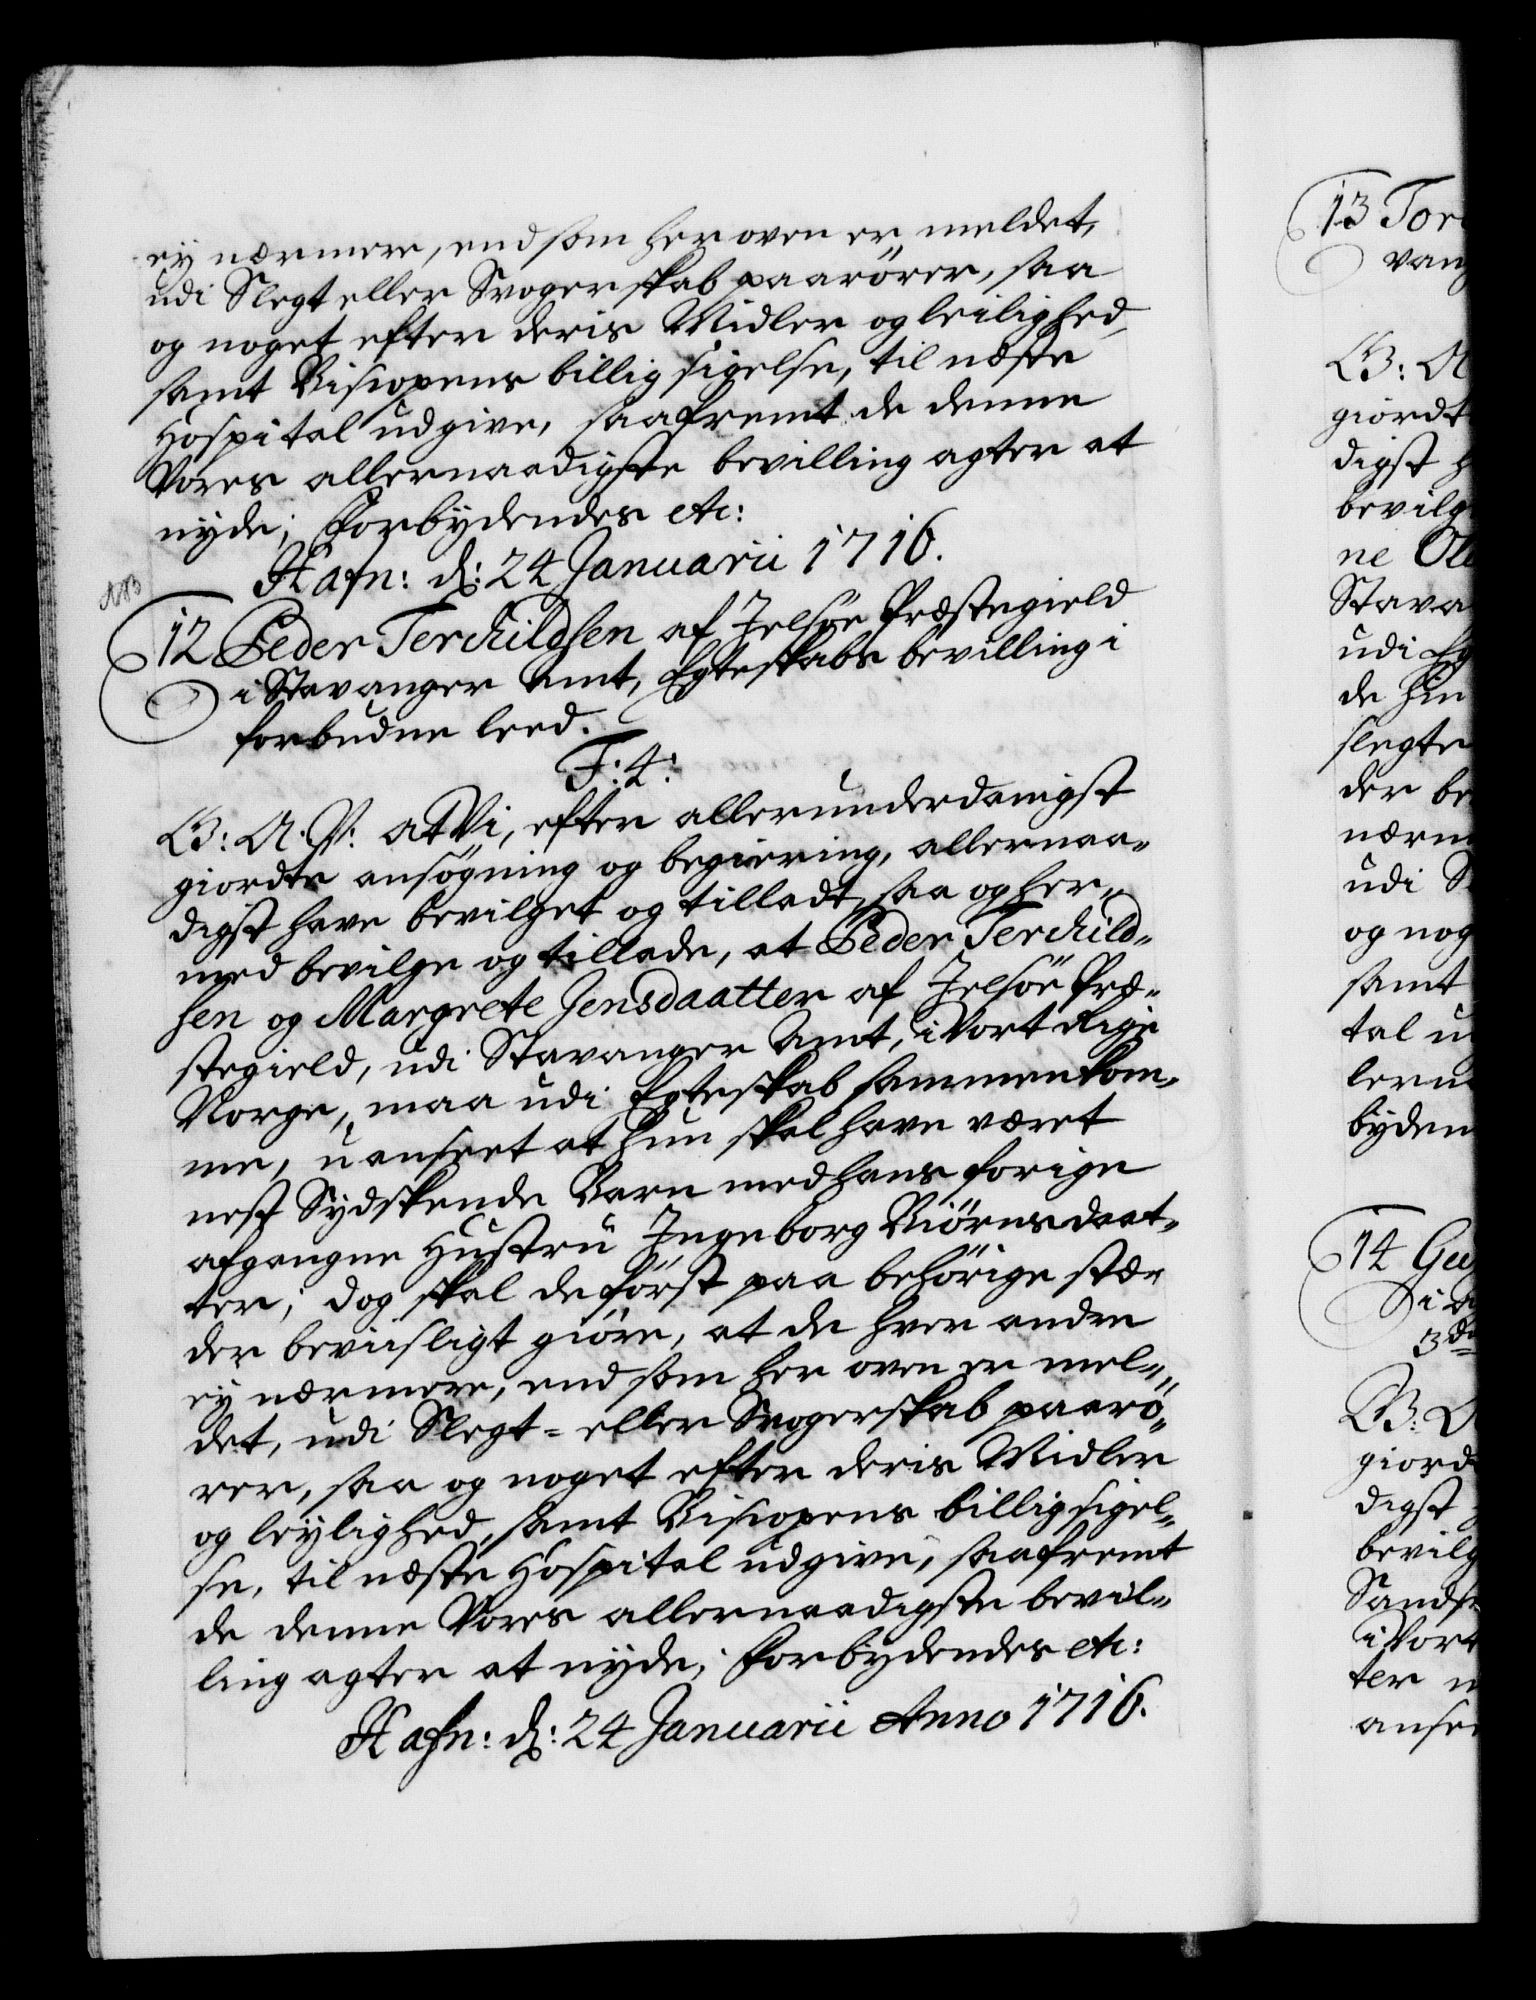 ey nærmere, end som her oven er meldet,
udi Slegt eller Svogerskab paarörer, saa
og noget efter deris Midler og leilighed,
samt Bispens billig sigelse, til næste
Hospital udgive, saafremt de denne
Vores allernaadigste bevilling agter at
nyde; Forbydendes etc:
Hafn: d: 24 Januarii 1716.
12 Peder Terchildsen af Jelsöe Præstegield
i Stavanger Amt, Egteskabs bevilling i
forbudne leed.
F: 4:
G: A: V: at Vi, efter allerunderdanigst
giordte ansögning og begiering, allernaa-
digst have bevilget og tilladt, saa og her-
med bevilge og tillade, at Peder Terchild-
sen og Margrete Jensdaatter af Jelsöe Præ-
stegield, udi Stavanger Amt, i Vort Rige
Norge, maa udi Egteskab sammenkom-
me, uanseet at hun skal have været
nest Sydskende Barn med hans forige
afgangne Hustru Ingeborg Biörnsdaat-
ter; dog skal de först paa behörige stæ-
der beviisligt giöre, at de hver andre
ey nærmere, end som her oven er mel-
det, udi Slegt- eller Svogerskab paarö-
rer, saa og noget efter deris Midler
og leylighed, samt Bispens billig sigel-
se, til næste Hospital udgive, saafremt
de denne Vores allernaadigste bevil-
ling agter at nyde; Forbydendes etc:
Hafn: d: 24 Januarii Anno 1716.
13 Tor
vang
G: A
giordt
digst h
bevilg
ne Ol
Stava
udi Eg
de hin
slegte
der be
nærm
udi S
og nog
samt
tal u
lern
byden
14 Gu
i
3
G: A
giord
digst
bevilg
Sands
i Vort
ter m
anse